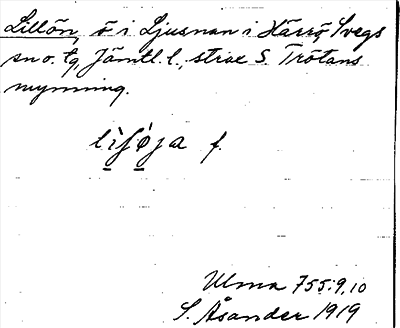 Lillön, ö i Ljusnan i Härrö, Svegs
sn o. tg, Jämtl. l., strax S. Trötans
mynning.
f.
Ulma 755:9,10
S. Åsander 1919